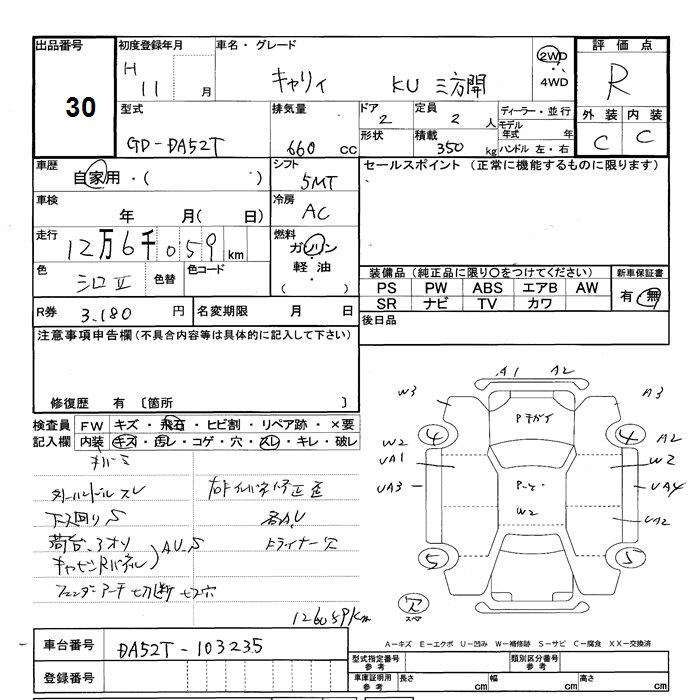 出品番号
30
初度登録年月
H 11 月
車名・グレード
キャリイ KU 三方開
2WD
4WD
評価点
R
外装 内装
C C
型式
GD-DA52T
排気量
660 cc
ドア
2
形状
定員
2 人
積載
350 kg
ディーラー・並行
モデル年式 年
ハンドル 左・右
車歴
自家用・( )
シフト
5MT
セールスポイント (正常に機能するものに限ります)
車検
年 月( 日)
冷房
AC
走行
12万6千059 km
燃料
ガソリン
・
軽油
( ・ )
色
シロII
色替
色コード
装備品 (純正品に限り○をつけてください)
新車保証書
PS PW ABS エアB AW
SR ナビ TV カワ
有・無
R券 3,180 円
名変期限 月 日
後日品
注意事項申告欄 (不具合内容等は具体的に記入して下さい)
修復歴 有 〔箇所 〕
検査員
記入欄
FW キズ・飛石・ヒビ割・リペア跡・×要
内装 キズ・汚レ・コゲ・穴・スレ・キレ・破レ
外ハンドル スレ
下回り S
荷台、3オソ
キャビンRパネル) AU、S
フェンダーアーチ 切断
各A,U
126059km
A1 A2
W3 A3
P チガイ
4 4
W2 A2
UA1 W2
UA3 UA4
W2
UA2
5 5
スペア
車台番号 DA52T-103235
登録番号
A－キズ E－エクボ U－凹み W－補修跡 S－サビ C－腐食 XX－交換済
型式指定番号 参考
類別区分番号 参考
車庫証明用 参考
長さ cm 幅 cm 高さ cm